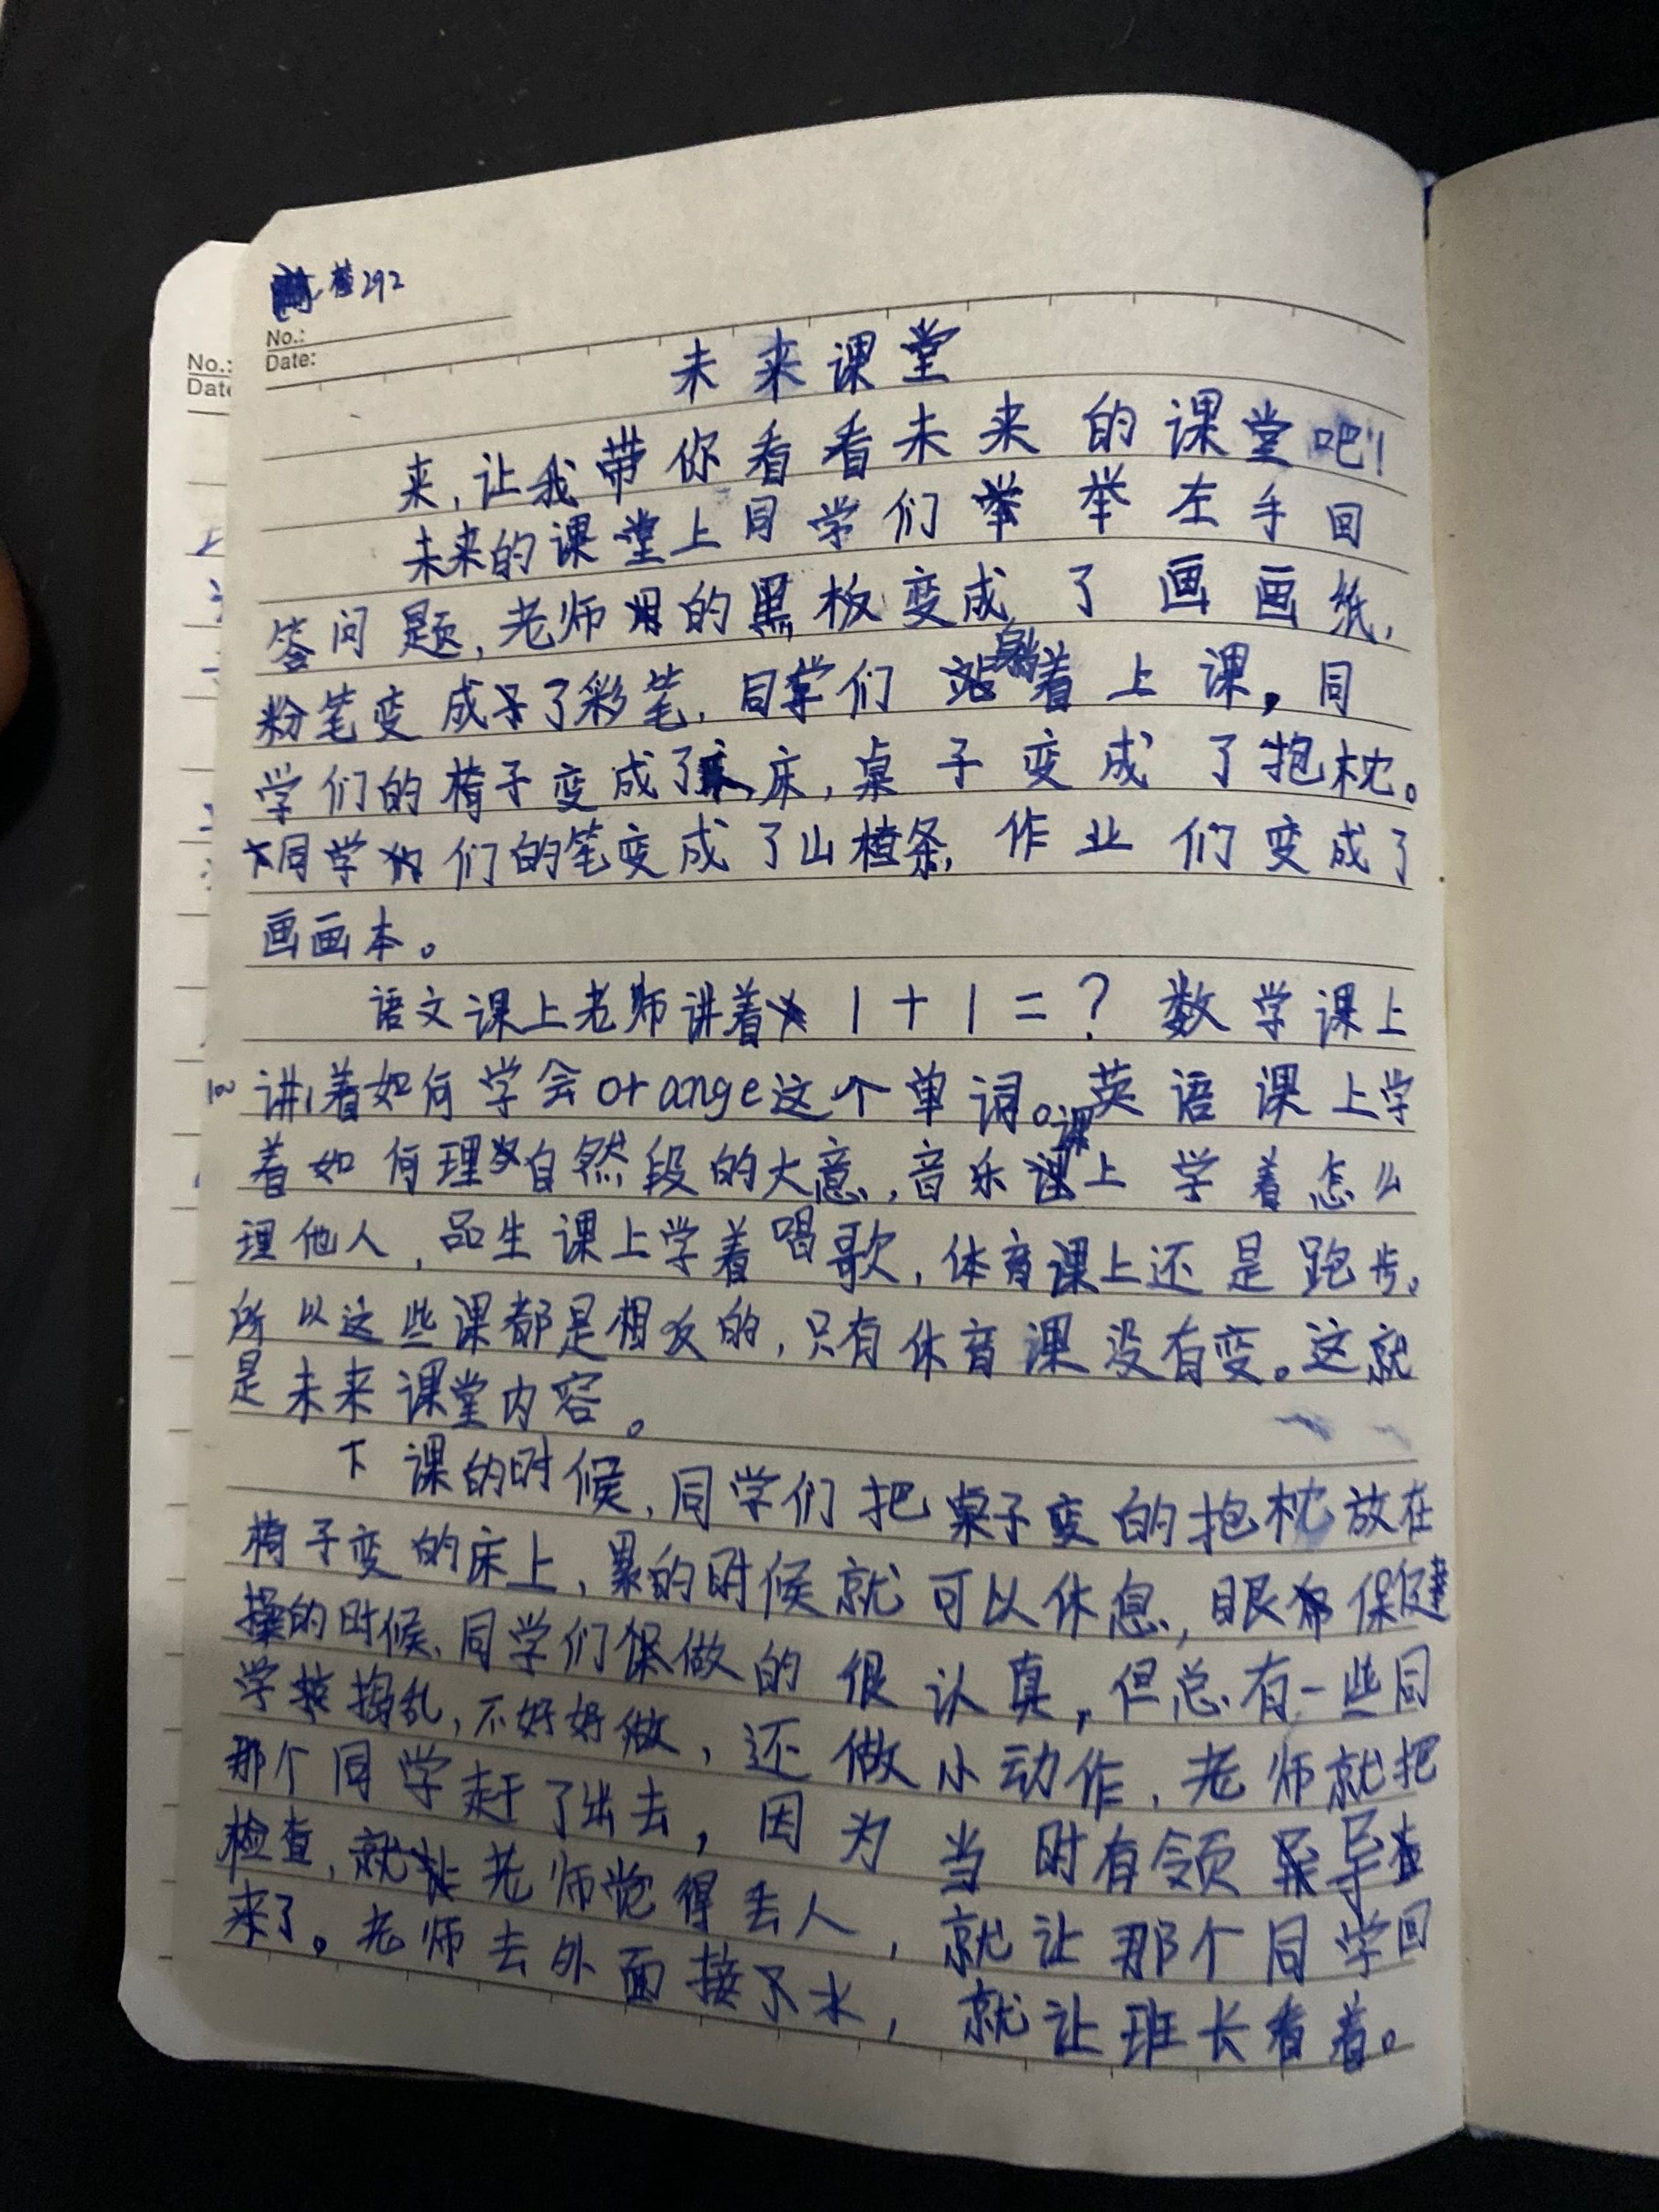 楂292
No.:
Date:
No.:
Date
未来课堂
来,让我带你看看未来的课堂吧!
未来的课堂上同学们举左手回
答问题,老师的黑板变成了画画纸,
粉笔变成了彩笔,同学们躺着上课,同
学们的椅子变成了床,桌子变成了抱枕。
同学们的笔变成了山楂条,作业们变成了
画画本。
语文课上老师讲着1+1=?数学课上
讲着如何学会orange这个单词。英语课上学
着如何理自然段的大意,音乐课上学着怎么
理他人,品生课上学着唱歌,体育课上还是跑步。
所以这些课都是相反的,只有体育课没有变。这就
是未来课堂内容。
下课的时候,同学们把桌子变的抱枕放在
椅子变的床上,累的时候就可以休息,眼保健
操的时候,同学们做的很认真,但总有一些同
学捣乱,不好好做,还做小动作,老师就把
那个同学赶了出去,因为当时有领导
检查,就让老师觉得丢人,就让那个同学回
来了。老师去外面接下水,就让班长看着。